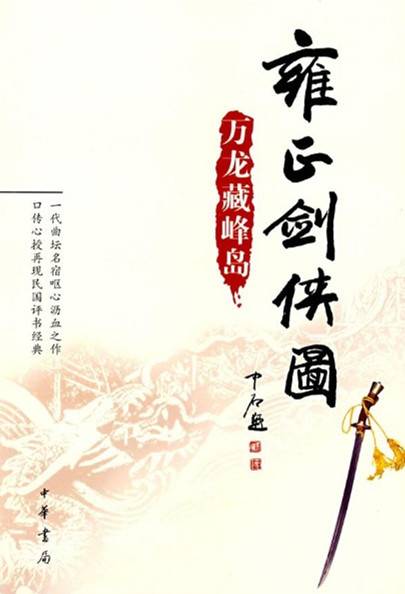 雍正剑侠图
万龙藏峰岛
一代曲坛名宿呕心沥血之作
口传心授再现民国评书经典
中石题
中华书局